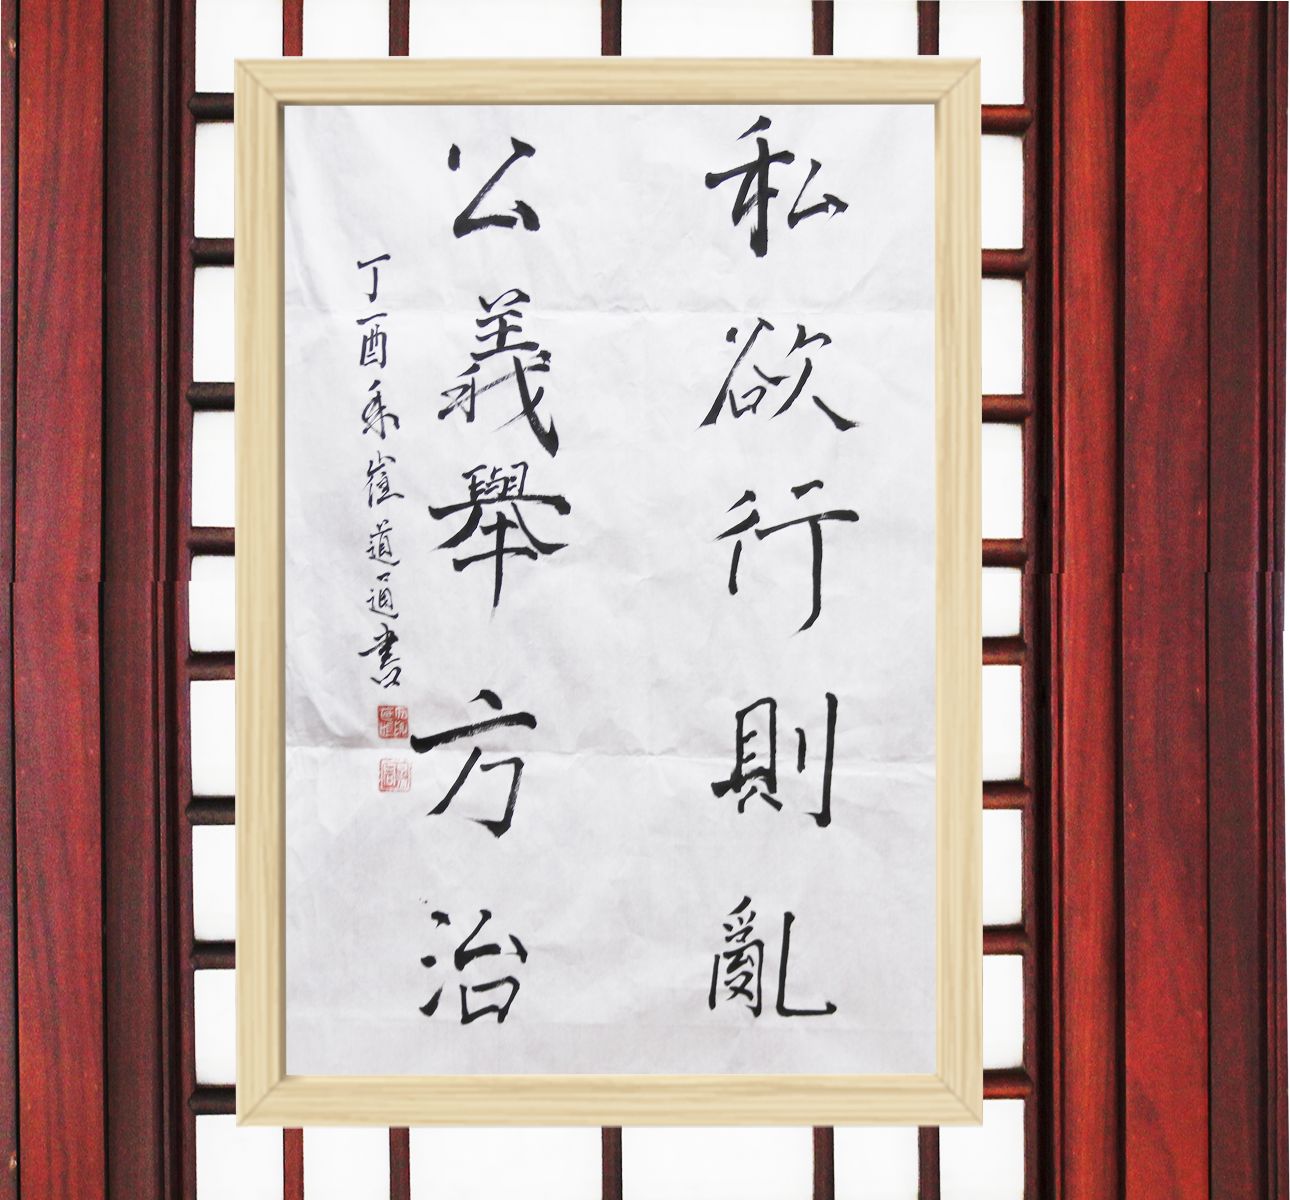 私欲行則亂
公義舉方治
丁酉年崔道通書